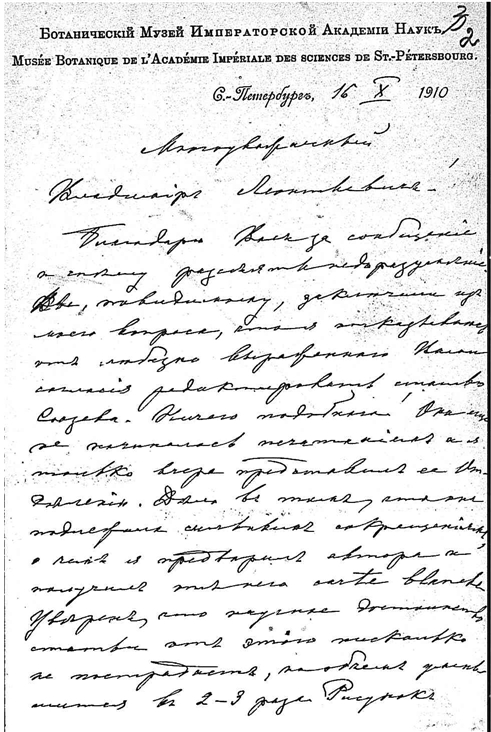 Ботаническій Музей Императорской Академіи Наукъ.
32
Musée Botanique de l'Académie Impériale des sciences de St.-Pétersbourg.
С.-Петербургъ, 16 X 1910
Многоуважаемый
Владиміръ Леонтьевичъ!
Благодарю Васъ за сообщеніе
и спѣшу разъяснить недоразумѣніе.
Вы, повидимому, заключили изъ
моего вопроса, что я отказываюсь
отъ любезно выраженнаго Вами
согласія редактировать статью
Сюзева. Ничего подобнаго! Она еще
не начиналась печатаніемъ и я
только вчера представилъ ее От-
дѣленію. Дѣло въ томъ, что она
подлежала сильнымъ сокращеніямъ,
о чемъ я предварилъ автора и
получилъ отъ него carte blanche
Увѣренъ, что научное достоинство
статьи отъ этого нисколько
не пострадаетъ, но объемъ умень-
шится въ 2-3 раза. Рисунокъ